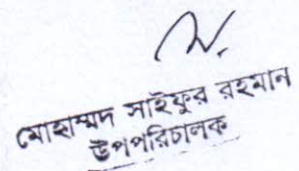 মোহাম্মদ সাইফুর রহমান
উপপরিচালক